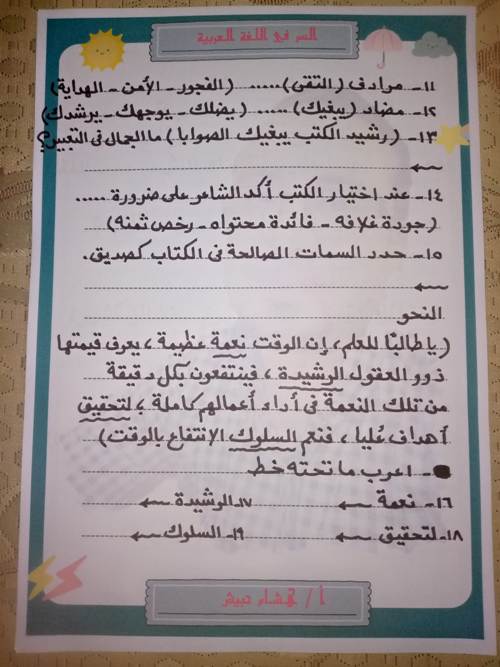 السر في اللغة العربية
١١- مرادف (التقى) ..... (الفجور - الأمن - الهداية)
١٢- مضاد (يبغيك) ..... (يضلك - يوجهك - يرشدك)
١٣- (رشيد الكتب يبغيك الصوابا) ما الجمال في التعبير؟
١٤- عند اختيار الكتب أكد الشاعر على ضرورة .....
(جودة غلافه - فائدة محتواه - رخص ثمنه)
١٥- حدد السمات الصالحة في الكتاب كصديق.
النحو
(يا طالبًا للعلم، إن الوقت نعمة عظيمة، يعرف قيمتها
ذوو العقول الرشيدة، فينتفعون بكل دقيقة
من تلك النعمة في أداء أعمالهم كاملة؛ لتحقيق
أهداف عُليا، فنعم السلوك الانتفاع بالوقت)
- اعرب ما تحته خط
١٦- نعمة ١٧- الرشيدة
١٨- لتحقيق ١٩- السلوك
أ / هشام